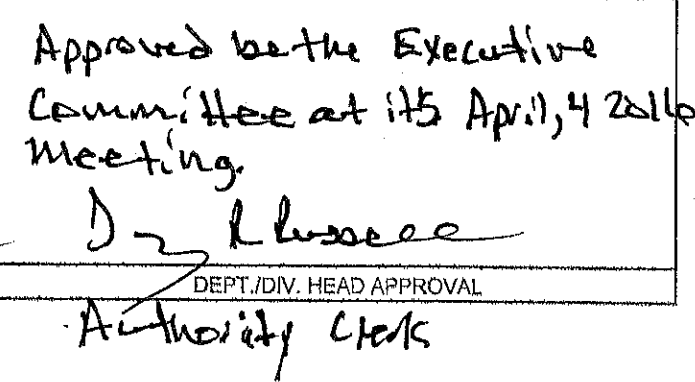 Approved be the Executive
Committee at its April, 4 2016
Meeting.
R Russell
DEPT./DIV. HEAD APPROVAL
Authority Clerk